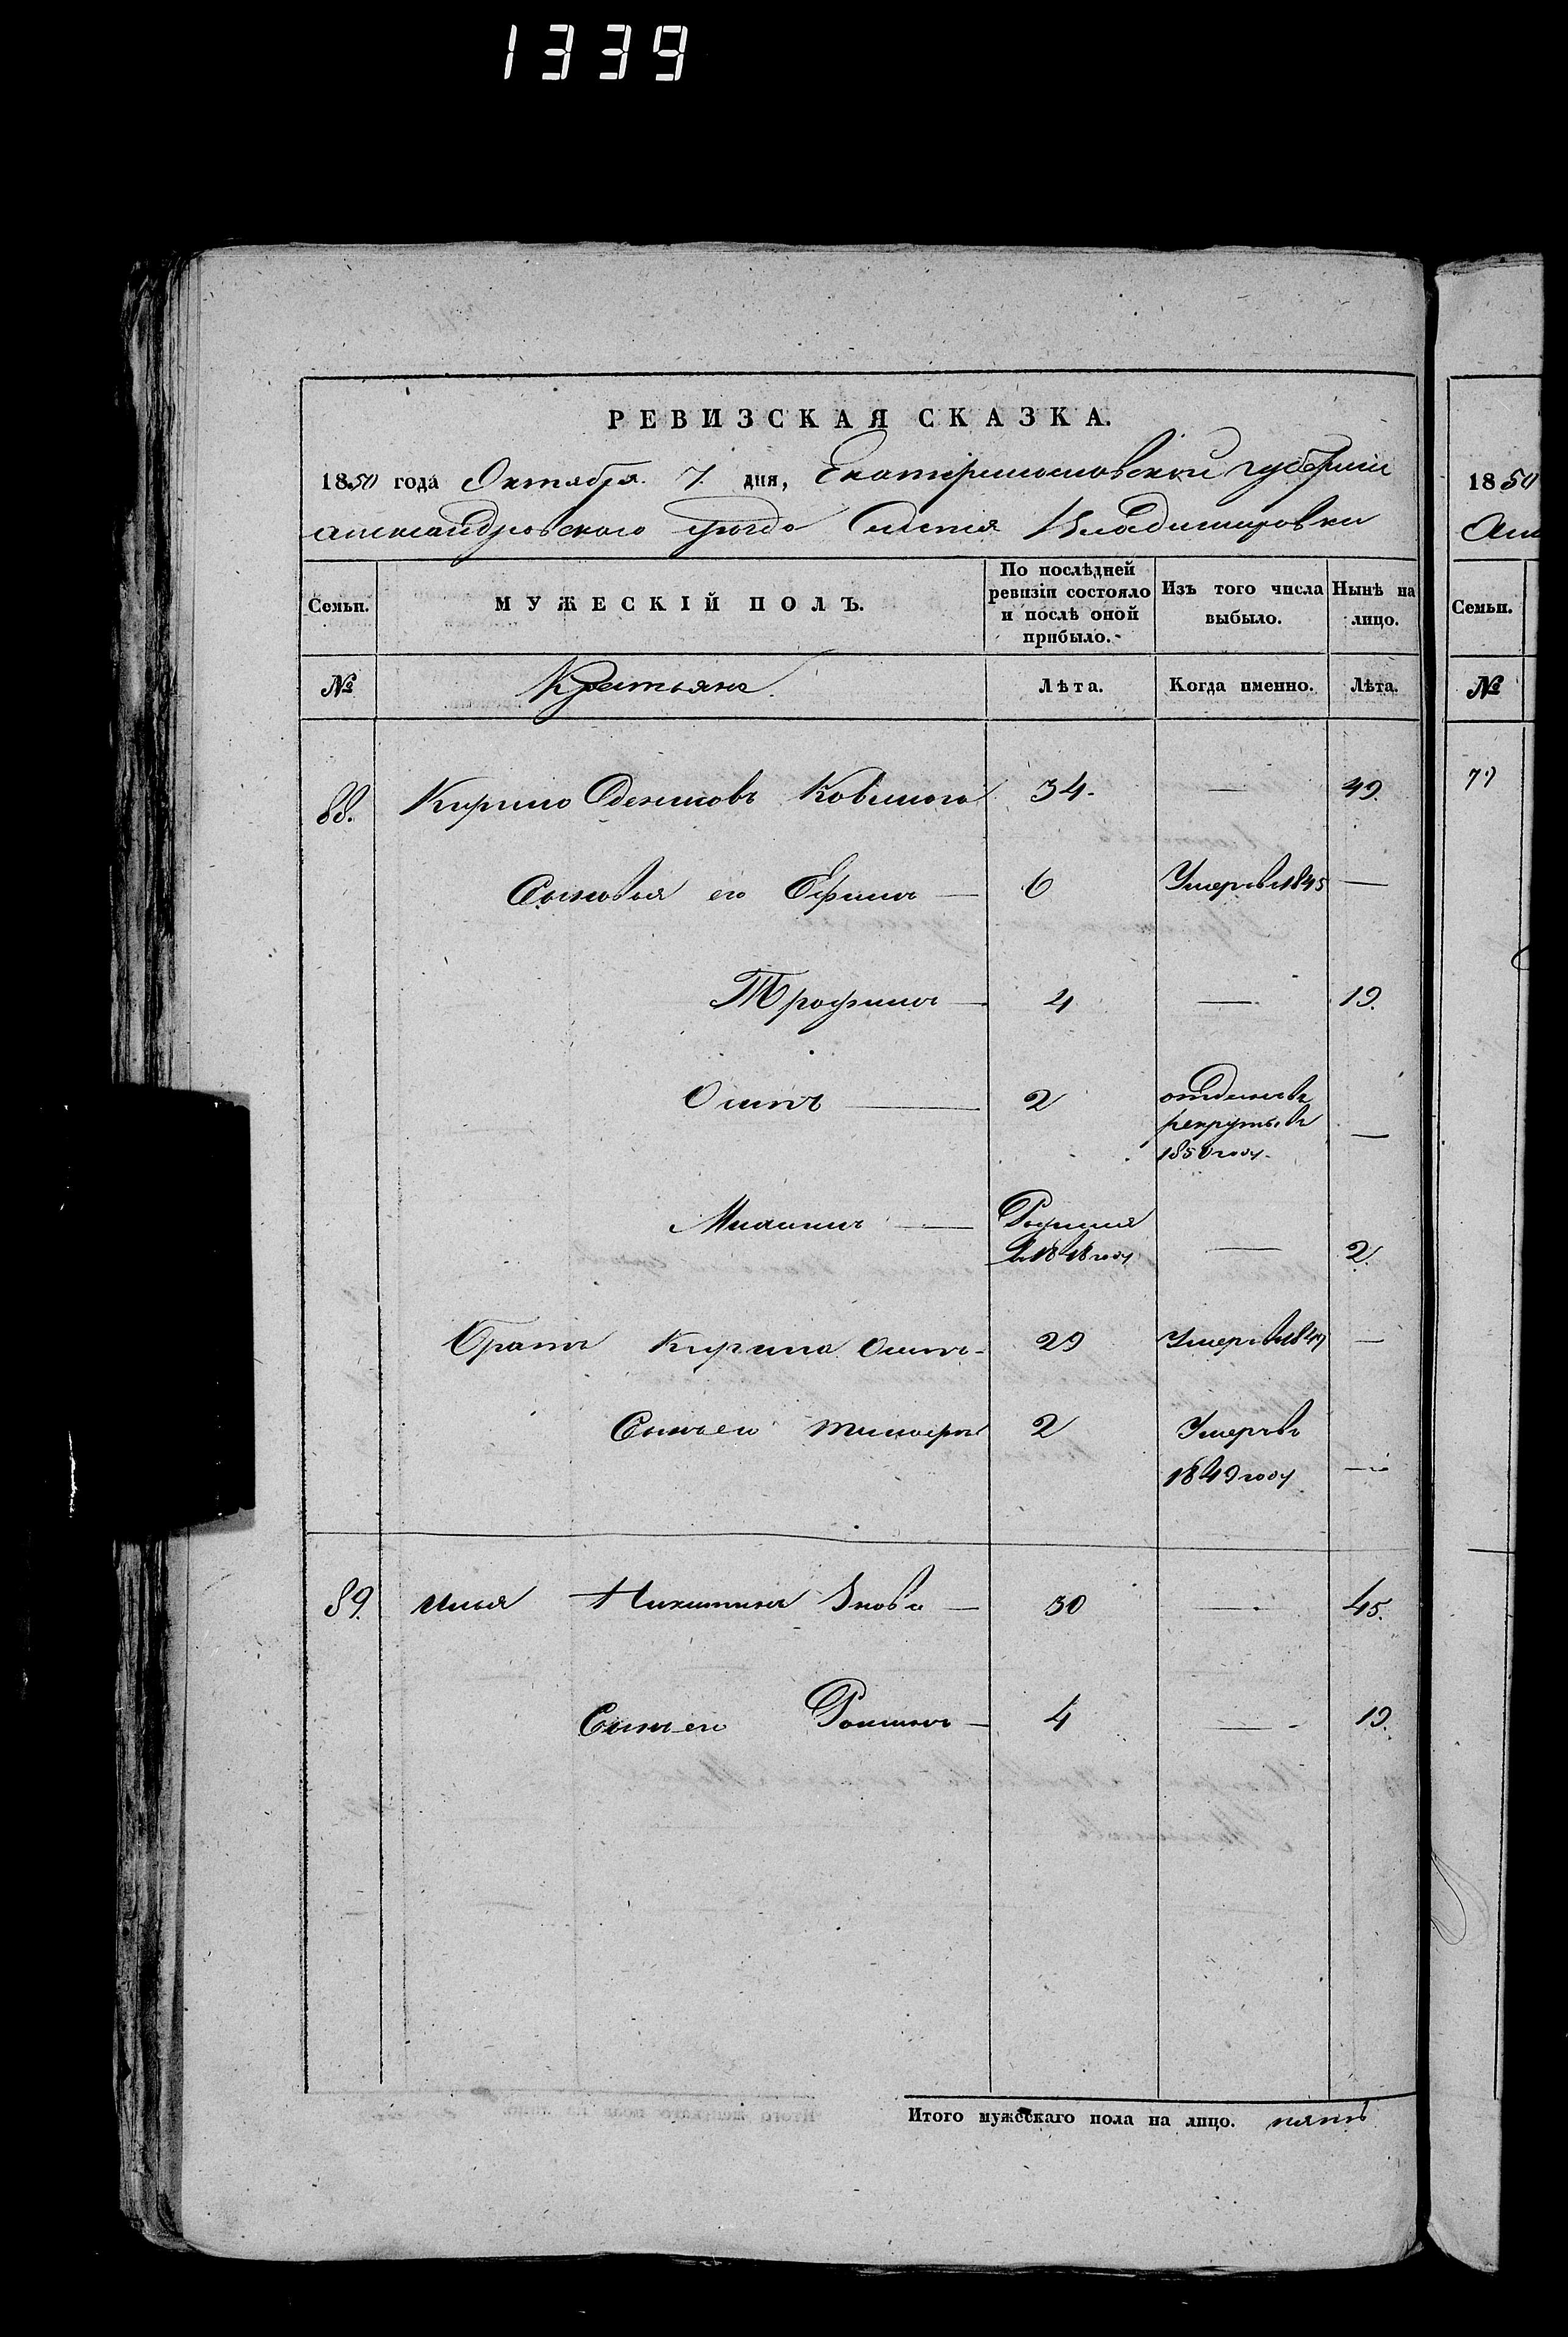 1339
РЕВИЗСКАЯ СКАЗКА.
1850 года Октября 7. дня, Екатеринославской губернии
Александровского уезда Селенія Владимировки
Семьи.
МУЖЕСКІЙ ПОЛЪ.
По послѣдней ревизіи состояло и послѣ оной прибыло.
Изъ того числа выбыло.
Нынѣ на лицо.
№ Крестьяне. Лѣта. Когда именно. Лѣта.
88. Кирило Денисовъ 34. — 49.
Сыновья его Ефимъ — 6 Умеръ в 1845 —
Трофимъ — 4 — 19.
Осипъ — 2 отданъ въ рекруты въ 1850 году. —
Родился в 1848 году — 2.
Братъ Кирила Осипъ 29 Умеръ в 1847 —
Сынъ его Тимофей 2 Умеръ въ 1849 году —
89. Илья Никитинъ — 30 — 45.
Сынъ его Романъ — 4 — 19.
Итого мужескаго пола на лицо. пять
1850
Семьи.
№